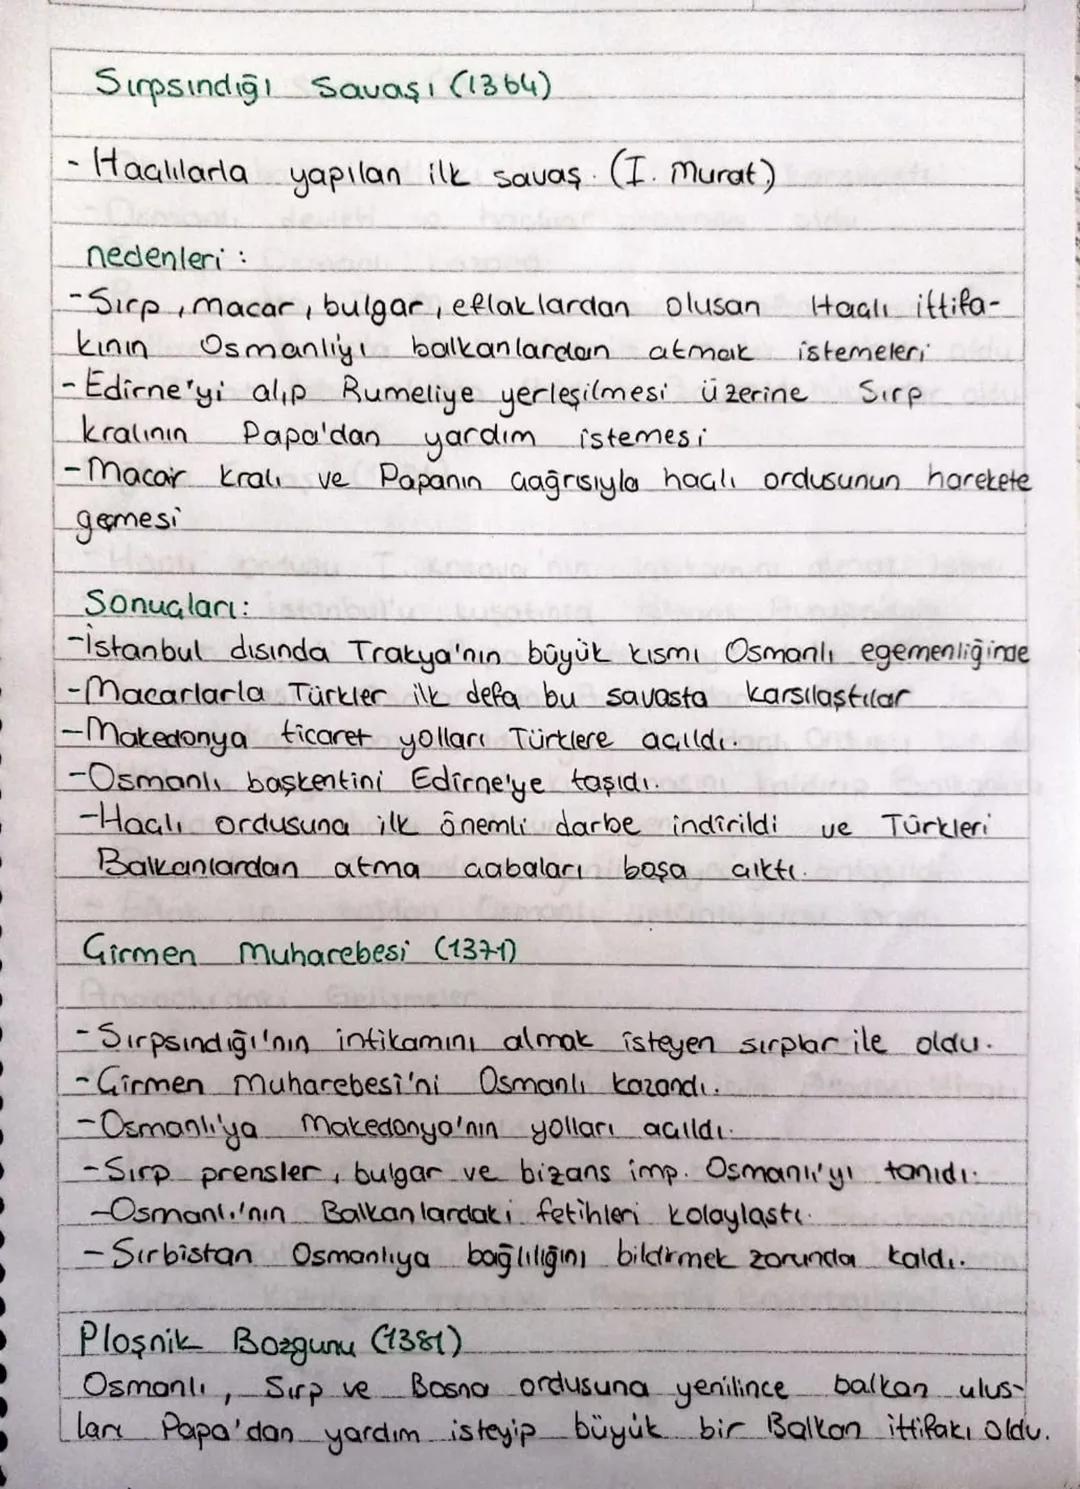 Sırpsındığı Savaşı (1364)
- Haçlılarla yapılan ilk savaş. (I. Murat)
nedenleri :
-Sırp, macar, bulgar, eflaklardan olusan Haçlı ittifa-
kının Osmanlıyı balkanlardan atmak istemeleri
- Edirne'yi alıp Rumeliye yerleşilmesi üzerine Sırp
kralının Papa'dan yardım istemesi
-Macar kralı ve Papanın çağrısıyla haçlı ordusunun harekete
geçmesi
Sonuçları:
-İstanbul dısında Trakya'nın büyük kısmı Osmanlı egemenliğinde
-Macarlarla Türkler ilk defa bu savasta karsılaştılar
-Makedonya ticaret yolları Türklere açıldı.
-Osmanlı başkentini Edirne'ye taşıdı.
-Haçlı ordusuna ilk önemli darbe indirildi ve Türkleri
Balkanlardan atma çabaları boşa çıktı.
Çirmen Muharebesi (1371)
-Sırpsındığı'nın intikamını almak isteyen sırplar ile oldu.
-Çirmen Muharebesi'ni Osmanlı kazandı.
-Osmanlı'ya Makedonya'nın yolları açıldı.
-Sırp prensler, bulgar ve bizans imp. Osmanlı'yı tanıdı.
-Osmanlı'nın Balkanlardaki fetihleri kolaylaştı.
-Sırbistan Osmanlıya bağlılığını bildirmek zorunda kaldı.
Ploşnik Bozgunu (1381)
Osmanlı, Sırp ve Bosna ordusuna yenilince balkan ulus-
ları Papa'dan yardım isteyip büyük bir Balkan ittifakı oldu.